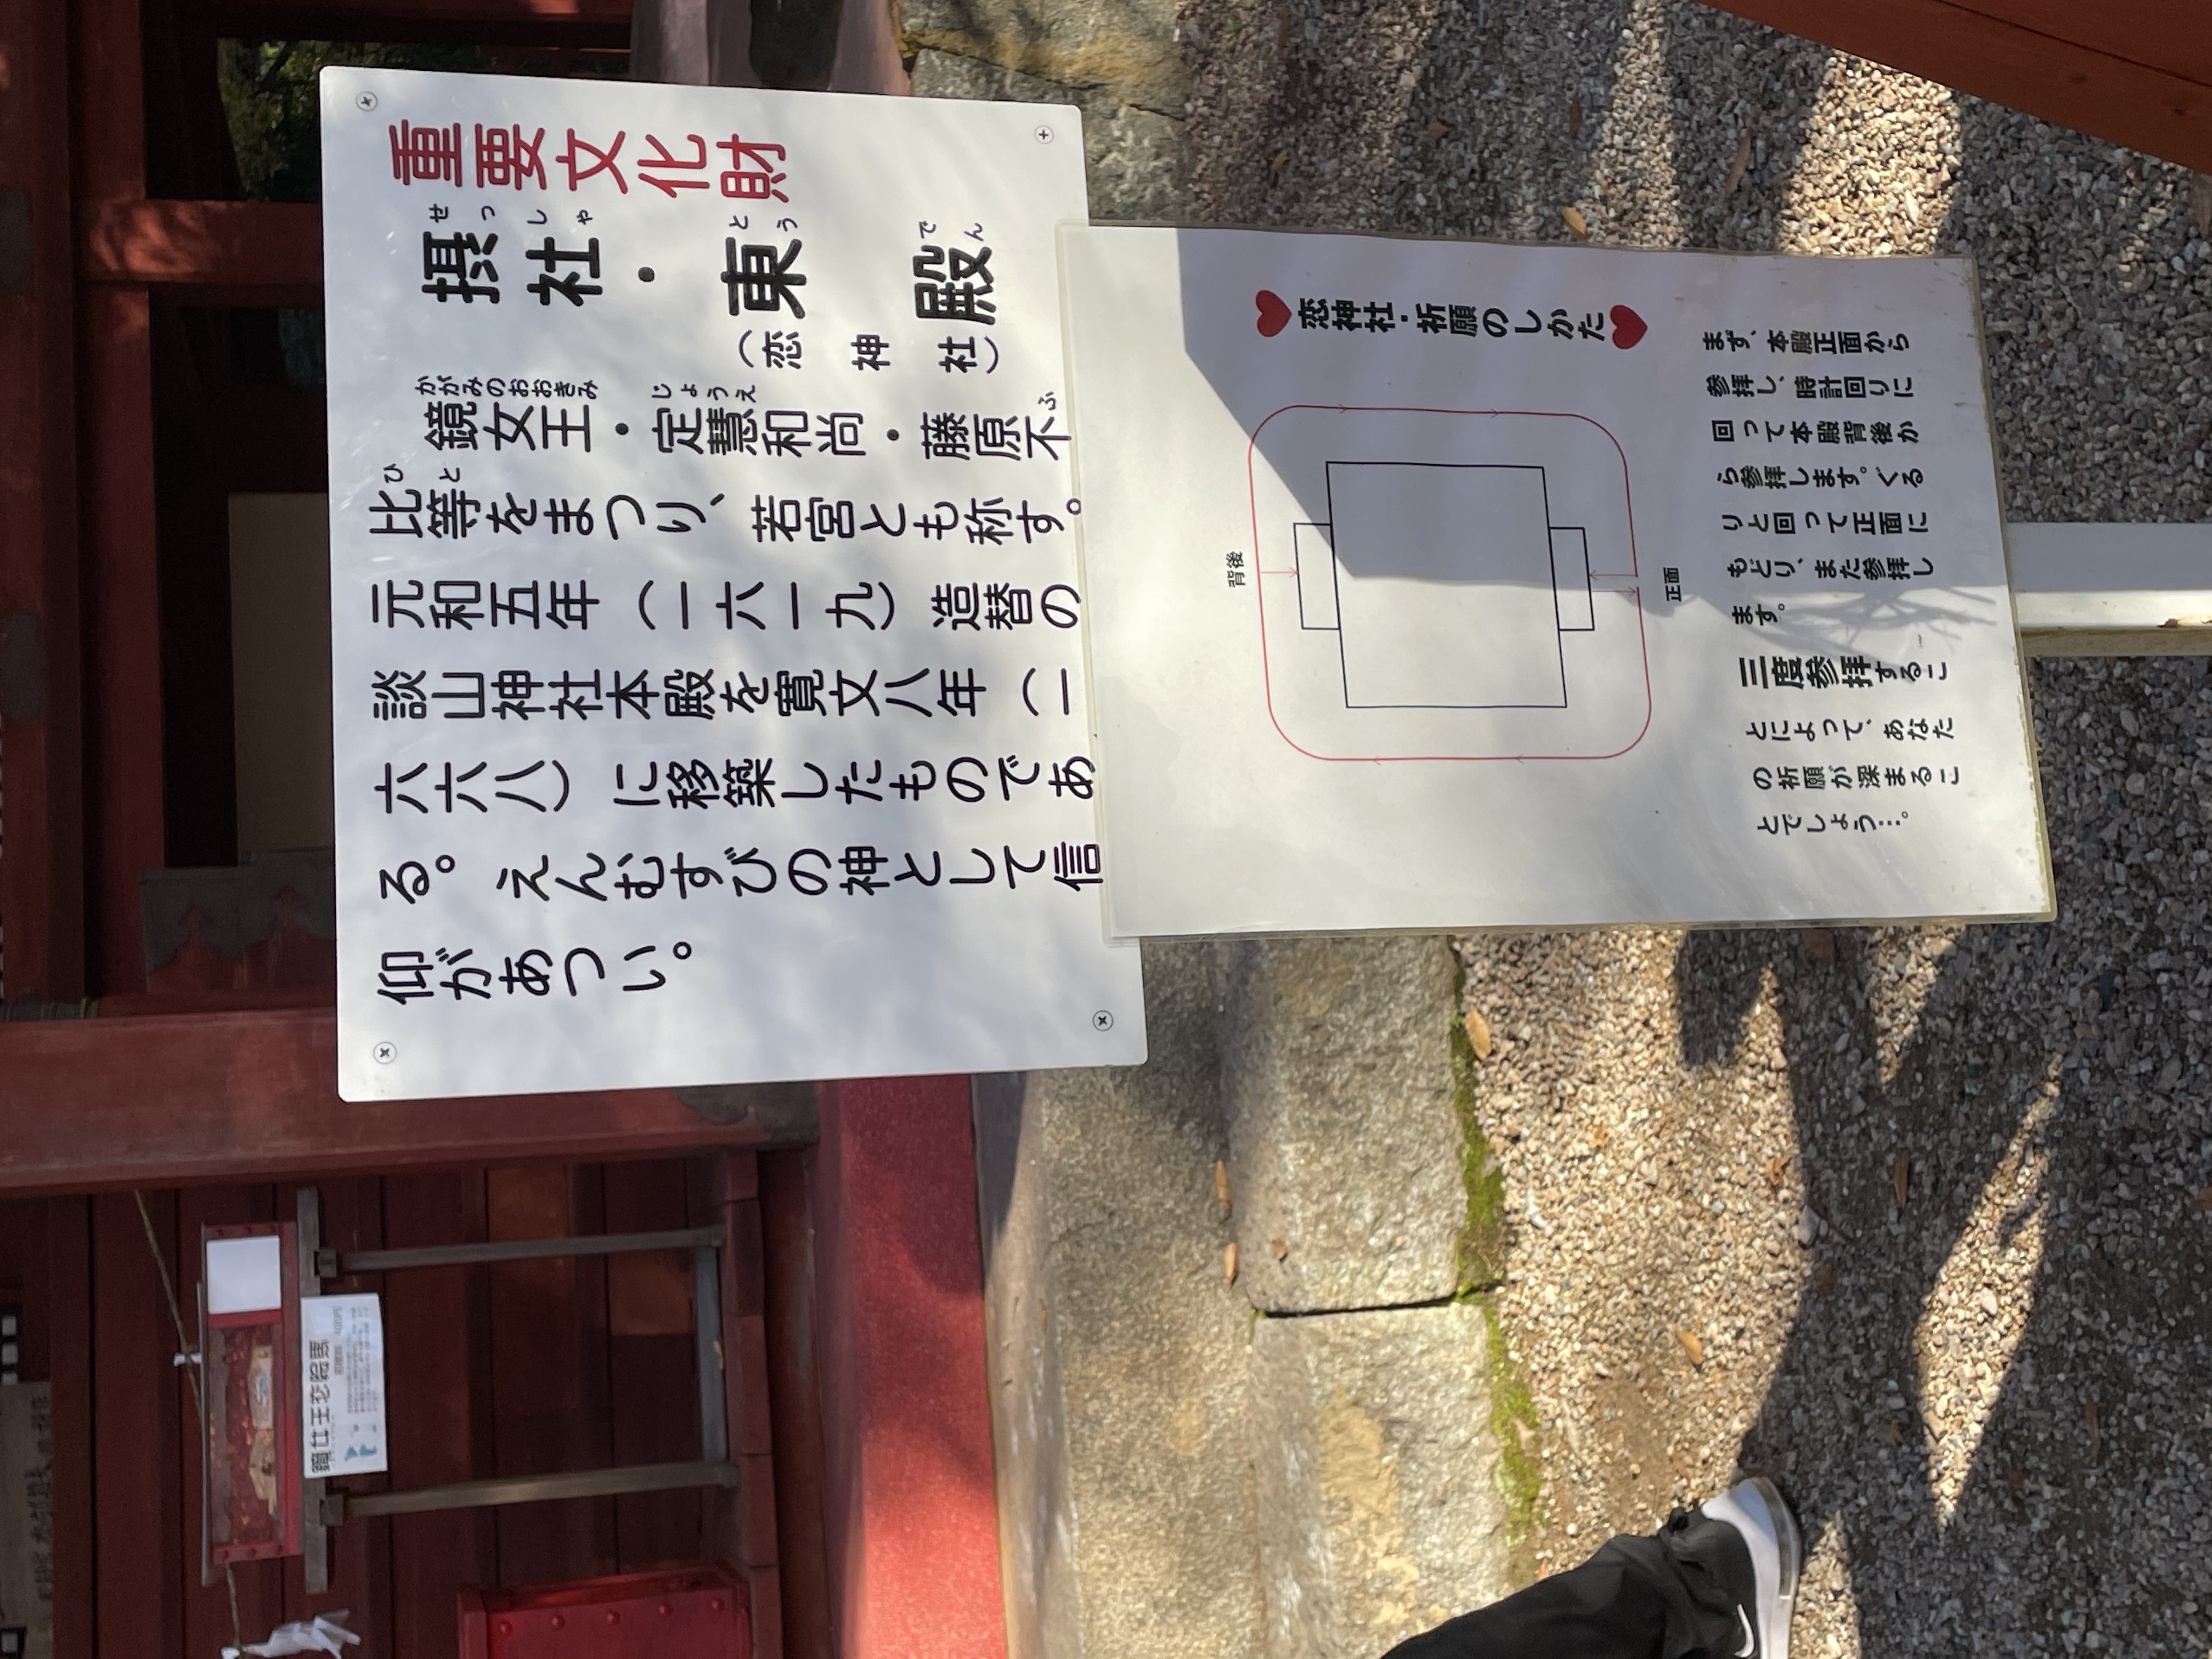 重要文化財
摂社・東殿
せっしゃ とうでん
(恋神社)
かがみのおおきみ じょうえ ふ
鏡女王・定慧和尚・藤原不
ひと
比等をまつり、若宮とも称す。
元和五年(一六一九)造替の
談山神社本殿を寛文八年(一
六六八)に移築したものであ
る。えんむすびの神として信
仰があつい。
恋神社・祈願のしかた
背後
正面
まず、本殿正面から
参拝し、時計回りに
回って本殿背後か
ら参拝します。ぐる
りと回って正面に
もどり、また参拝し
ます。
三度参拝するこ
とによって、あなた
の祈願が深まるこ
とでしょう…。
鏡女王花絵馬